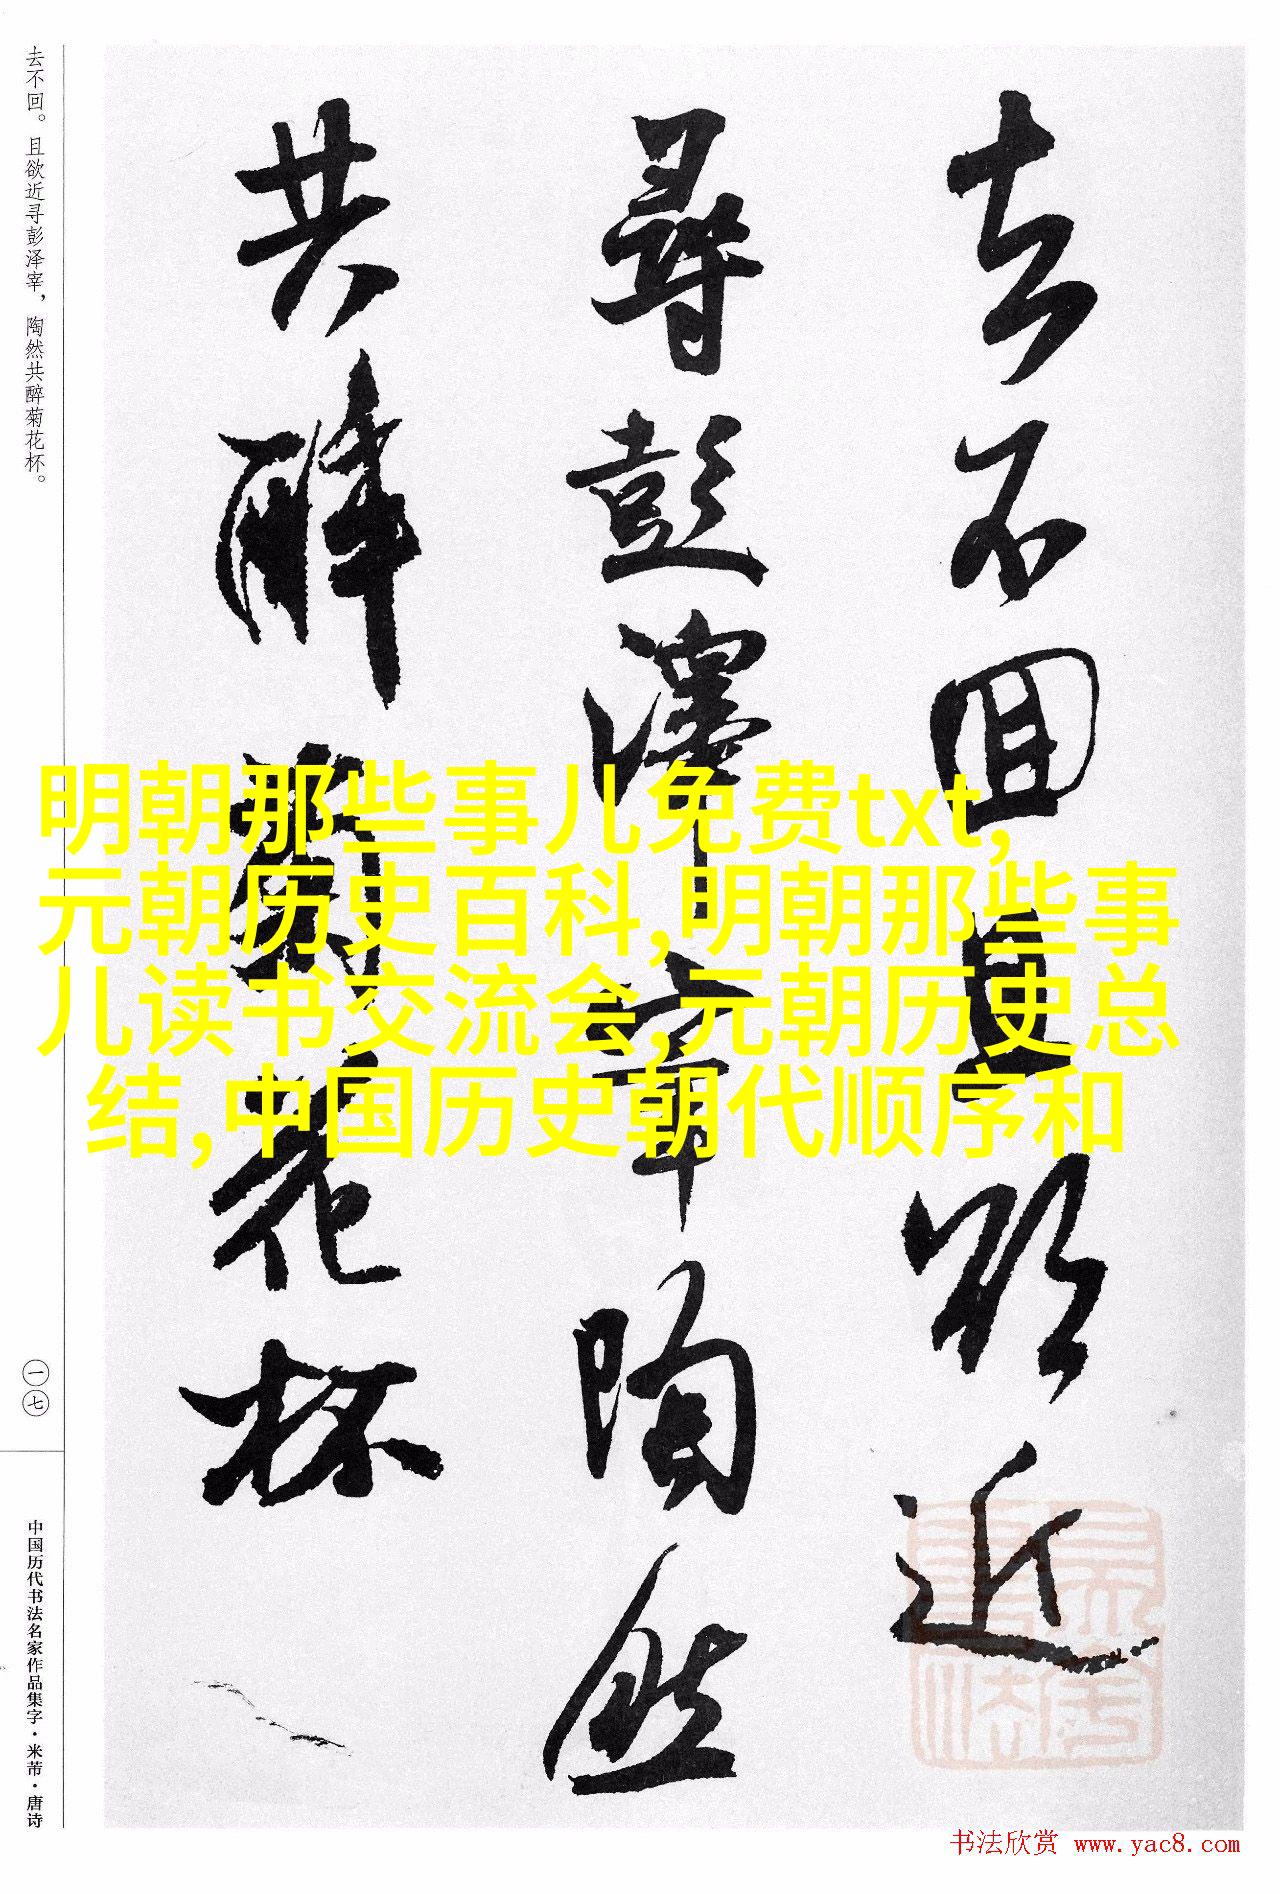 去不回且欲近
尋彭澤宰陶然
共醉菊花杯
去不回。且欲近寻彭泽宰，陶然共醉菊花杯。
一七
中国历代书法名家作品集字·米芾·唐诗
明朝那些事儿免费txt,
元朝历史百科,明朝那些事
儿读书交流会,元朝历史总
结,中国历史朝代顺序和
书法欣赏 www.yac8.com